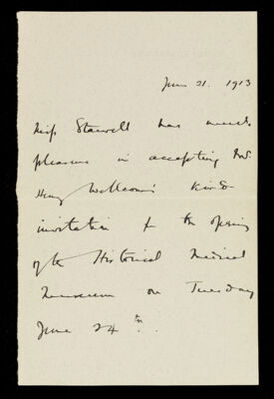 June 21. 1913
Miss Stawell has much
pleasure in accepting Mr.
Henry Wellcome's kind
invitation to the opening
of the Historical Medical
Museum on Tuesday
June 24th.